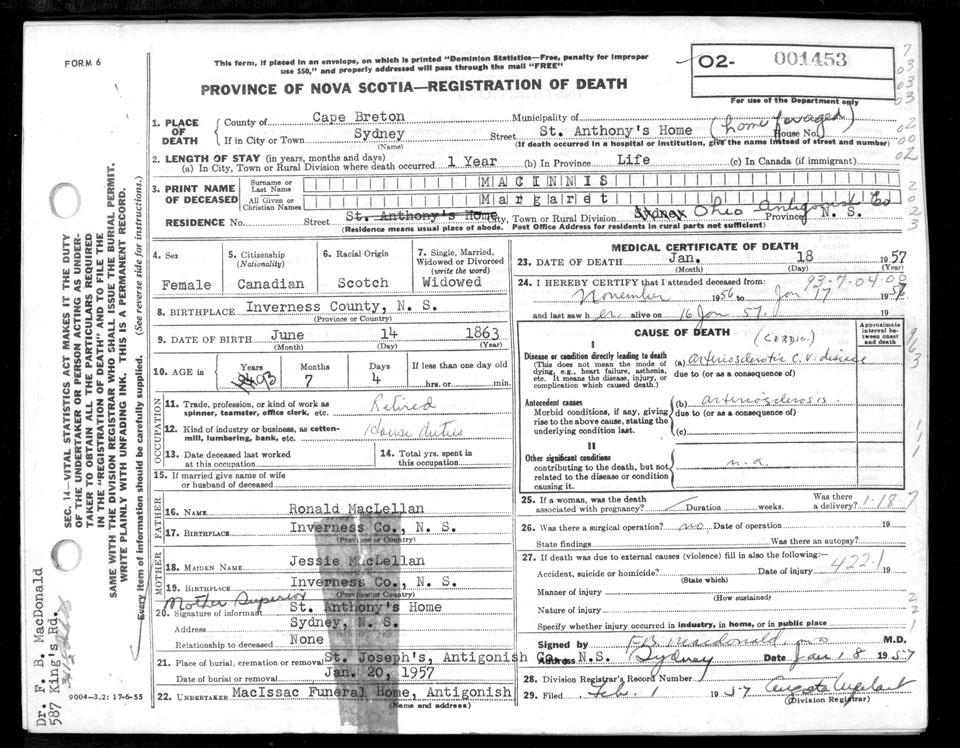 FORM 6
This form, if placed in an envelope, on which is printed "Dominion Statistics—Free, penalty for improper
use $50," and properly addressed will pass through the mail "FREE"
02- 001453
For use of the Department only
PROVINCE OF NOVA SCOTIA—REGISTRATION OF DEATH
1. PLACE OF DEATH
County of Cape Breton Municipality of
If in City or Town Sydney Street St. Anthony's Home House No.
(Name) (If death occurred in a hospital or institution, give the name instead of street and number)
2. LENGTH OF STAY (in years, months and days)
(a) In City, Town or Rural Division where death occurred 1 Year (b) In Province Life (c) In Canada (if immigrant)
3. PRINT NAME OF DECEASED
Surname or Last Name MACINNIS
All Given or Christian Names Margaret
RESIDENCE No. Street St. Anthony's Home City, Town or Rural Division Sydney Ohio Antigonish Co N. S.
(Residence means usual place of abode. Post Office Address for residents in rural parts not sufficient)
4. Sex
Female
5. Citizenship (Nationality)
Canadian
6. Racial Origin
Scotch
7. Single, Married, Widowed or Divorced (write the word)
Widowed
8. BIRTHPLACE Inverness County, N. S.
(Province or Country)
9. DATE OF BIRTH June 14 1863
(Month) (Day) (Year)
10. AGE in Years Months Days If less than one day old
93 7 4 hrs. or min.
OCCUPATION
11. Trade, profession, or kind of work as
spinner, teamster, office clerk, etc. Retired
12. Kind of industry or business, as cotton-
mill, lumbering, bank, etc. House duties
13. Date deceased last worked
at this occupation
14. Total yrs. spent in
this occupation
15. If married give name of wife
or husband of deceased
FATHER
16. NAME Ronald MacLellan
17. BIRTHPLACE Inverness Co., N. S.
(Province or Country)
MOTHER
18. MAIDEN NAME Jessie McLellan
19. BIRTHPLACE Inverness Co., N. S.
(Province or Country)
Mother Superior
20. Signature of informant St. Anthony's Home
Address Sydney, N. S.
Relationship to deceased None
21. Place of burial, cremation or removal St. Joseph's, Antigonish Co., N.S.
Date of burial or removal Jan. 20, 1957
22. UNDERTAKER MacIssac Funeral Home, Antigonish
(Name and address)
MEDICAL CERTIFICATE OF DEATH
23. DATE OF DEATH Jan. 18 1957
(Month) (Day)
93-7-04-00
24. I HEREBY CERTIFY that I attended deceased from:
November 1956 to Jan 17 1957
and last saw her alive on 16 Jan 57. 19
CAUSE OF DEATH
Approximate interval between onset and death
I
(CARDIO)
Disease or condition directly leading to death
(This does not mean the mode of
dying, e.g., heart failure, asthenia,
etc. It means the disease, injury, or
complication which caused death.)
(a) arteriosclerotic C.V. disease
due to (or as a consequence of)
Antecedent causes
Morbid conditions, if any, giving
rise to the above cause, stating the
underlying condition last.
(b) arteriosclerosis.
due to (or as a consequence of)
(c)
II
Other significant conditions
contributing to the death, but not
related to the disease or condition
causing it.
n.a.
25. If a woman, was the death
associated with pregnancy? Duration weeks. Was there a delivery?
1-18-7
26. Was there a surgical operation? no Date of operation 19
State findings Was there an autopsy?
27. If death was due to external causes (violence) fill in also the following:
422.1
Accident, suicide or homicide? Date of injury 19
(State which)
Manner of injury
(How sustained)
Nature of injury
Specify whether injury occurred in industry, in home, or in public place
Signed by F.B. Macdonald, M.D.
Address Sydney Date Jan 18 1957
28. Division Registrar's Record Number
29. Filed Feb. 1 1957
(Division Registrar)
SEC. 14—VITAL STATISTICS ACT MAKES IT THE DUTY
OF THE UNDERTAKER OR PERSON ACTING AS UNDER-
TAKER TO OBTAIN ALL THE PARTICULARS REQUIRED
IN THE "REGISTRATION OF DEATH" AND TO FILE THE
SAME WITH THE DIVISION REGISTRAR WHO SHALL ISSUE THE BURIAL PERMIT.
WRITE PLAINLY WITH UNFADING INK. THIS IS A PERMANENT RECORD.
Every item of information should be carefully supplied. (See reverse side for instructions.)
Dr. F. B. MacDonald
587 King's Rd.
9004-3.2: 17-6-55